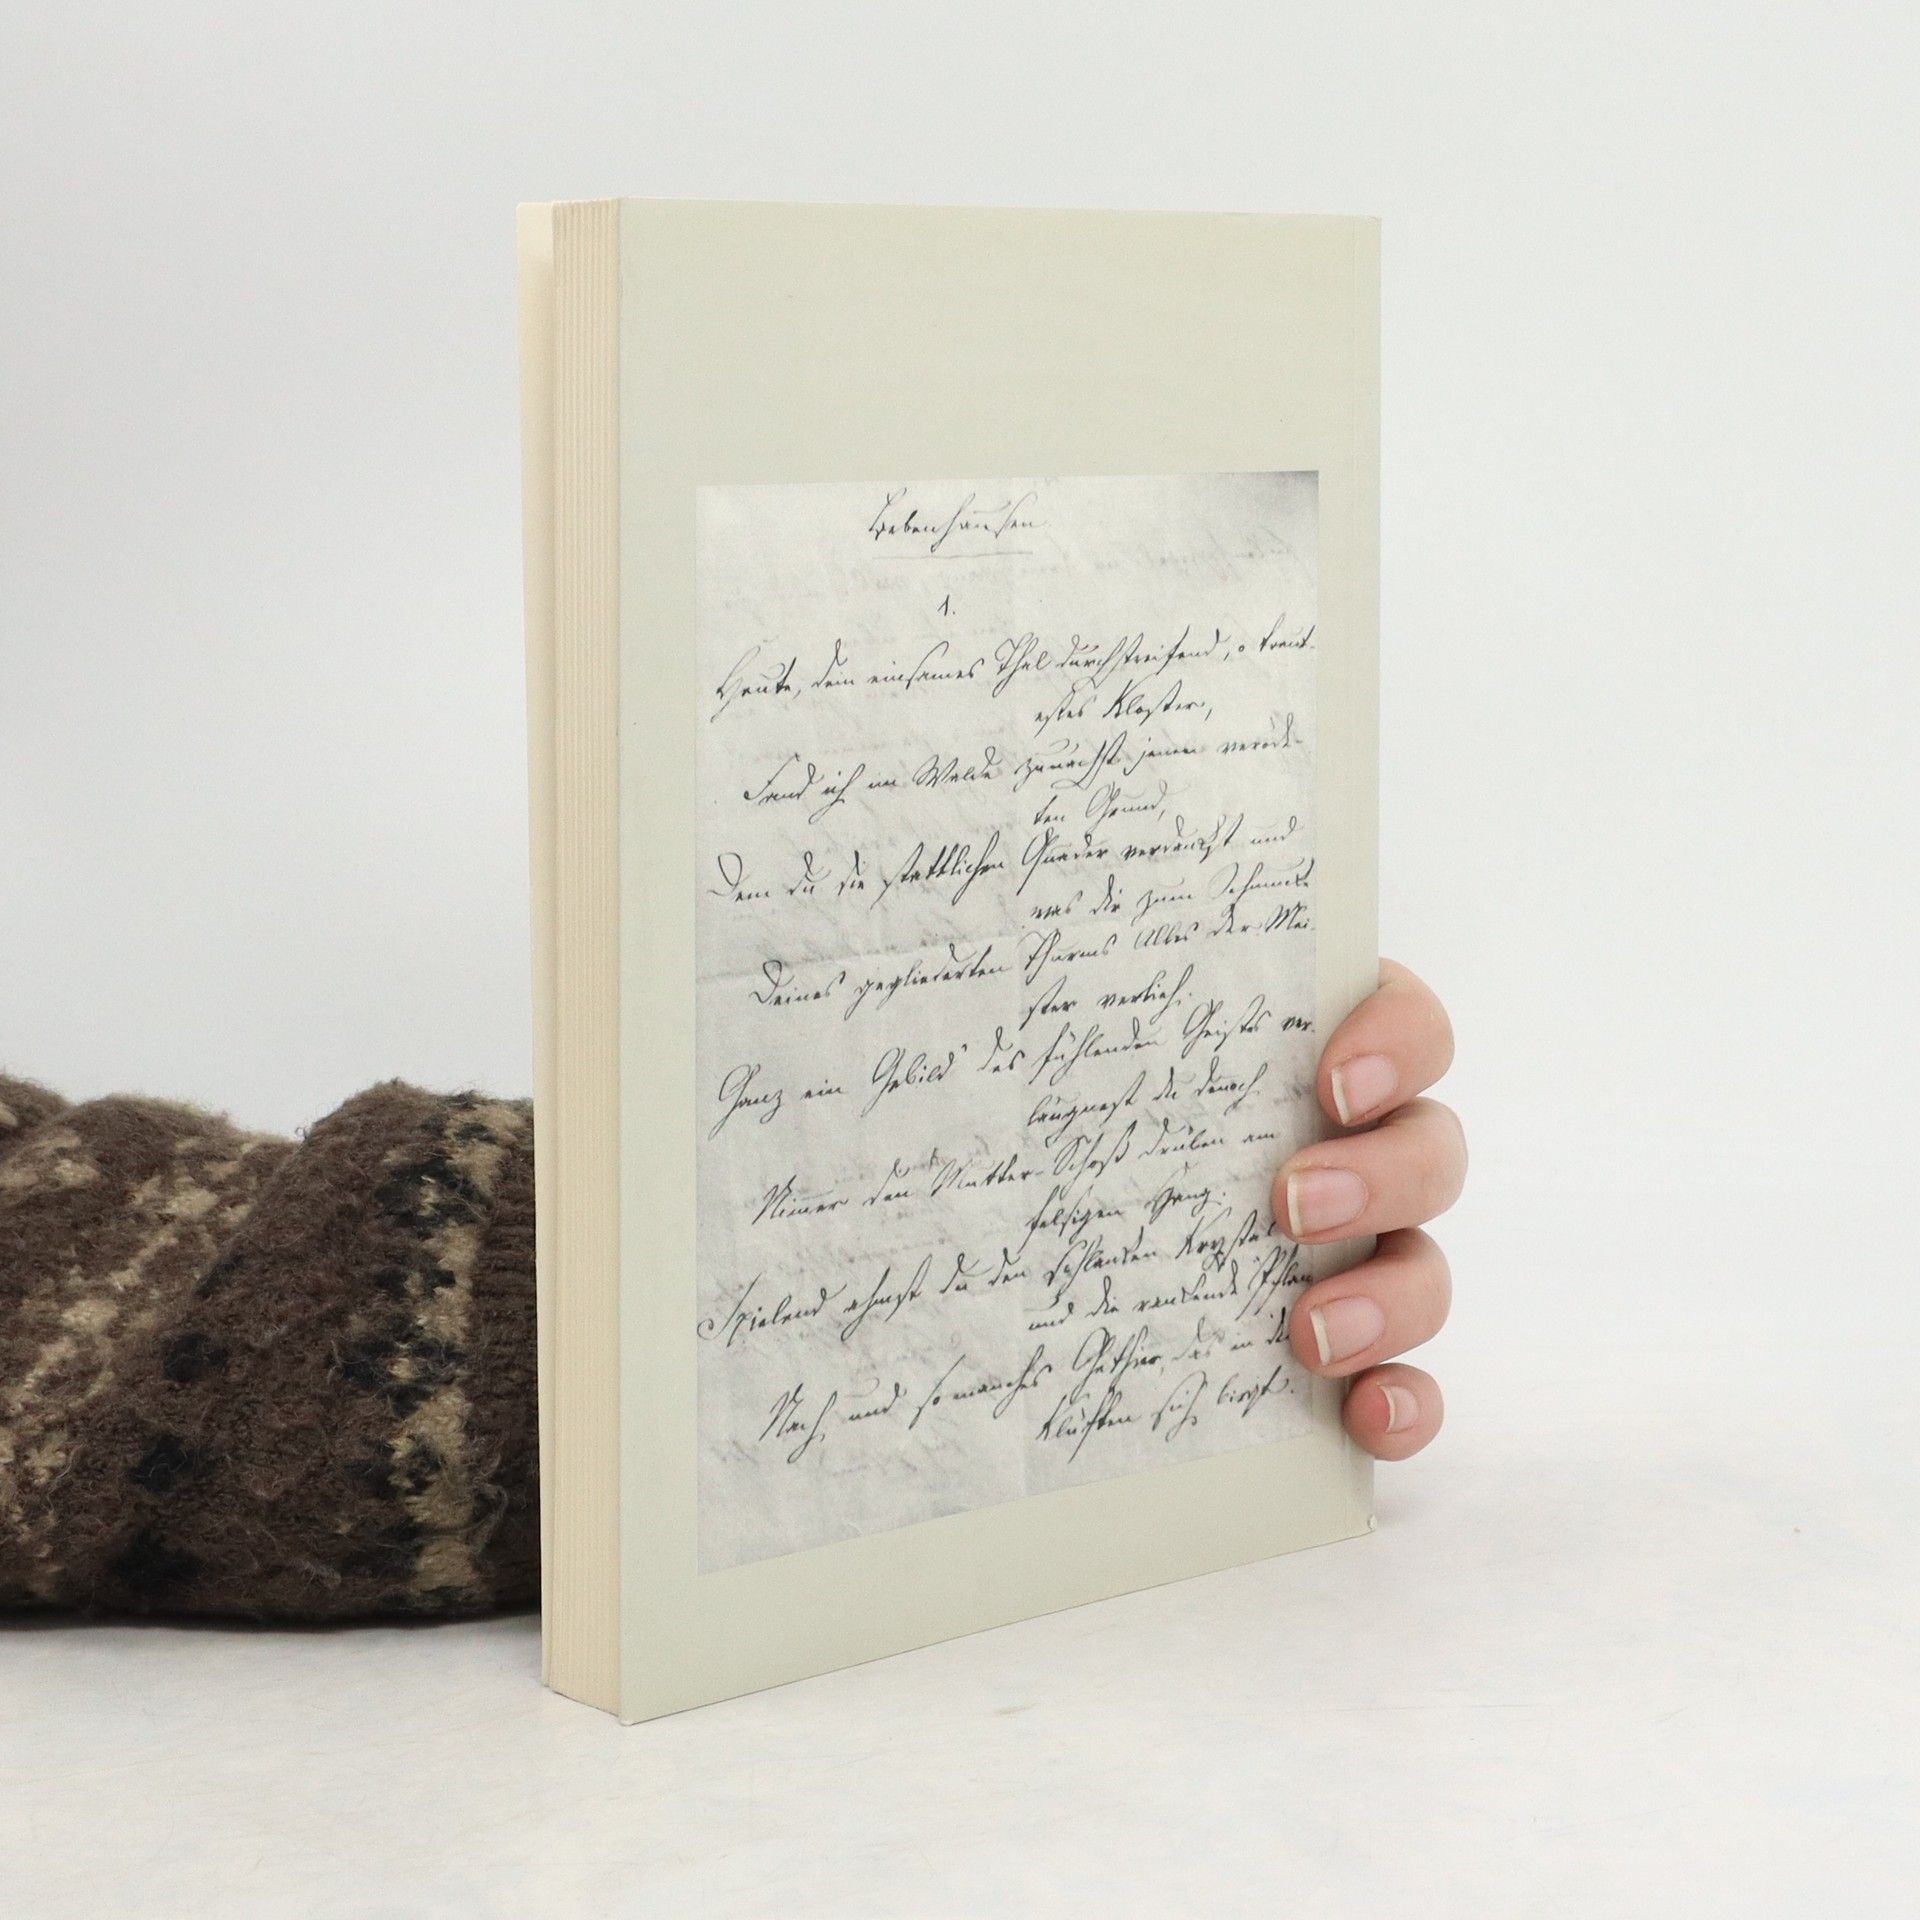 Bebenhausen.
1.
Heute, dein einsames Thal durchstreifend, o traut-
estes Kloster,
Fand ich im Walde zunächst jenen veröde-
ten Grund,
Dem du die stattlichen Quader verdankst und
was dir zum Schmucke
Deines gegliederten Thurms Alles der Mei-
ster verlieh.
Ganz ein Gebild des fühlenden Geistes ver-
läugnest du dennoch
Nimmer den Mutter-Schoß drüben am
felsigen Hang.
Spielend ahmst du den schlanken Krystall
und die rankende Pflan
Nach, und so manches Gethier, das in den
Klüften sich birgt.